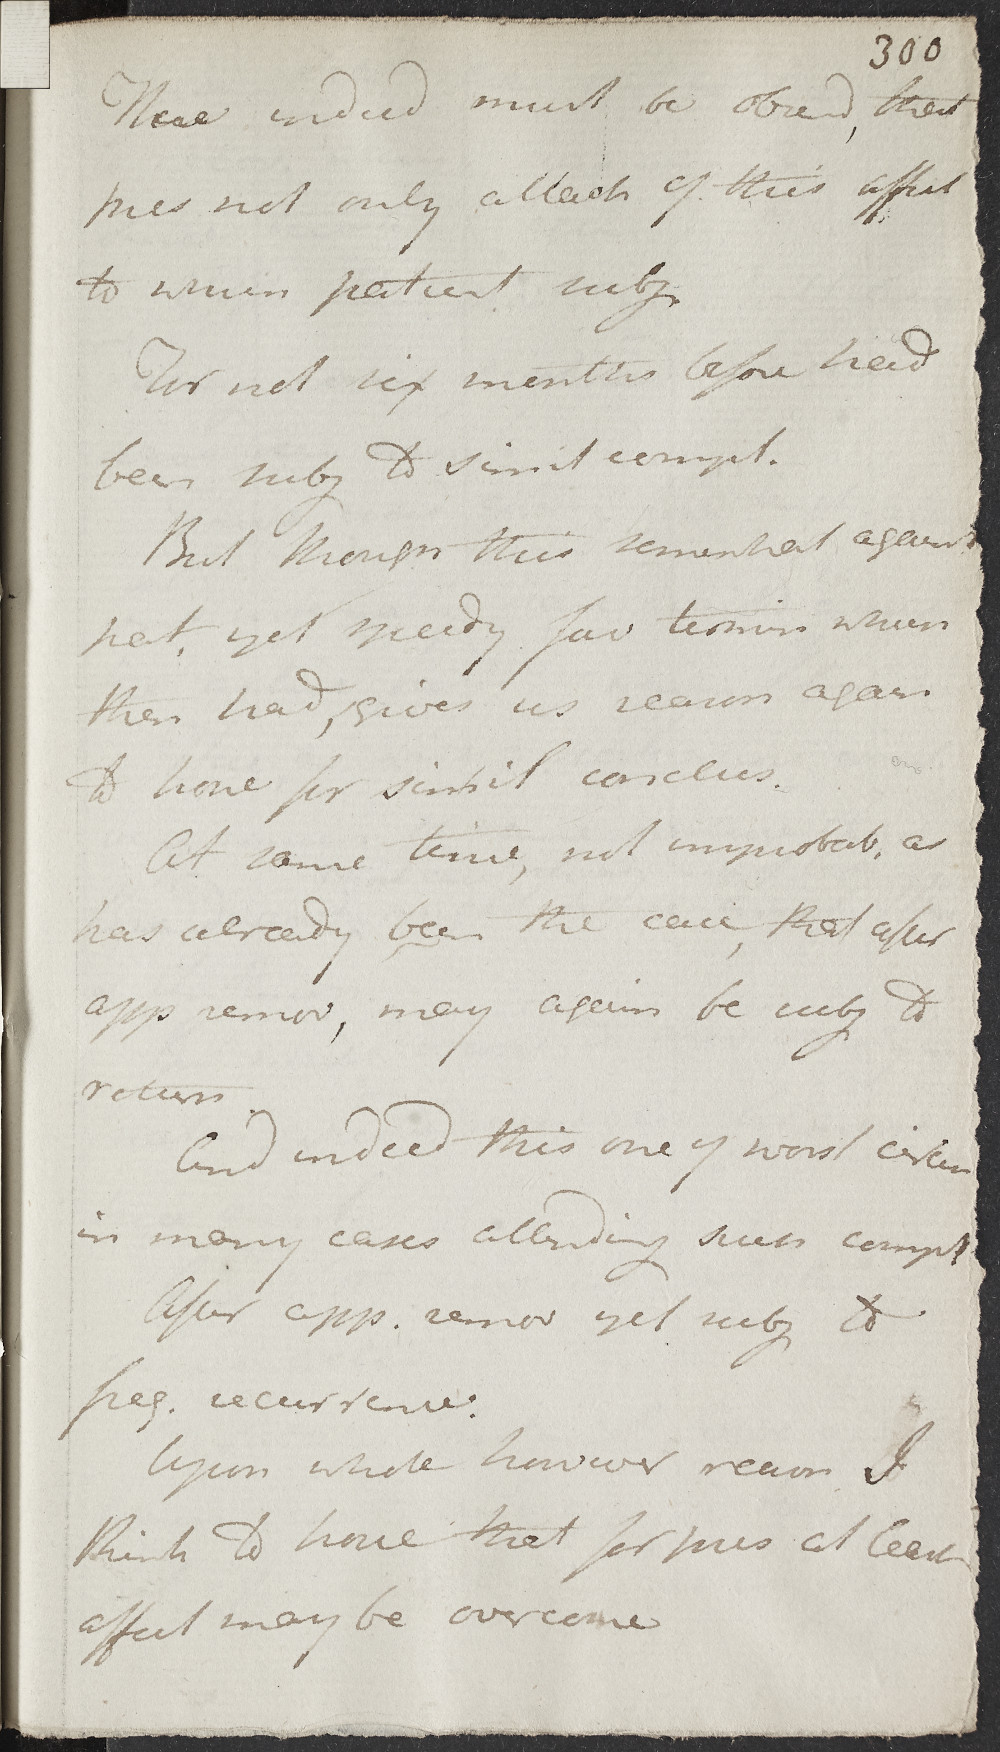 300
Here indeed must be observd, that
pres not only attack of this affect
to which patient subj.
For not six months before had
been subj to simil compl.
But though this somewhat against
pat. yet speedy fav termin which
then had, gives us reason again
to hope for simil conclus.
At same time, not improbab. as
has already been the case, that after
app remov, may again be subj to
return.
And indeed this one of worst circum
in many cases attending such compl
After app. remov yet subj to
freq. recurrence.
Upon whole however reason I
think to hope that for pres at least
affect may be overcome